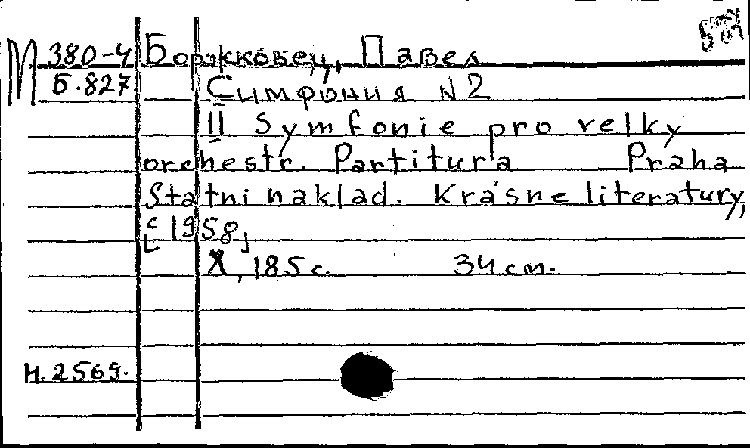 М 380-4 Боржковец, Павел
Б.827 Симфония N2
II Symfonie pro velky
orchestr. Partitura Praha
Statni naklad. Krásne literatury,
[c 1958]
X, 185 с. 34 cm.
Н.2569.